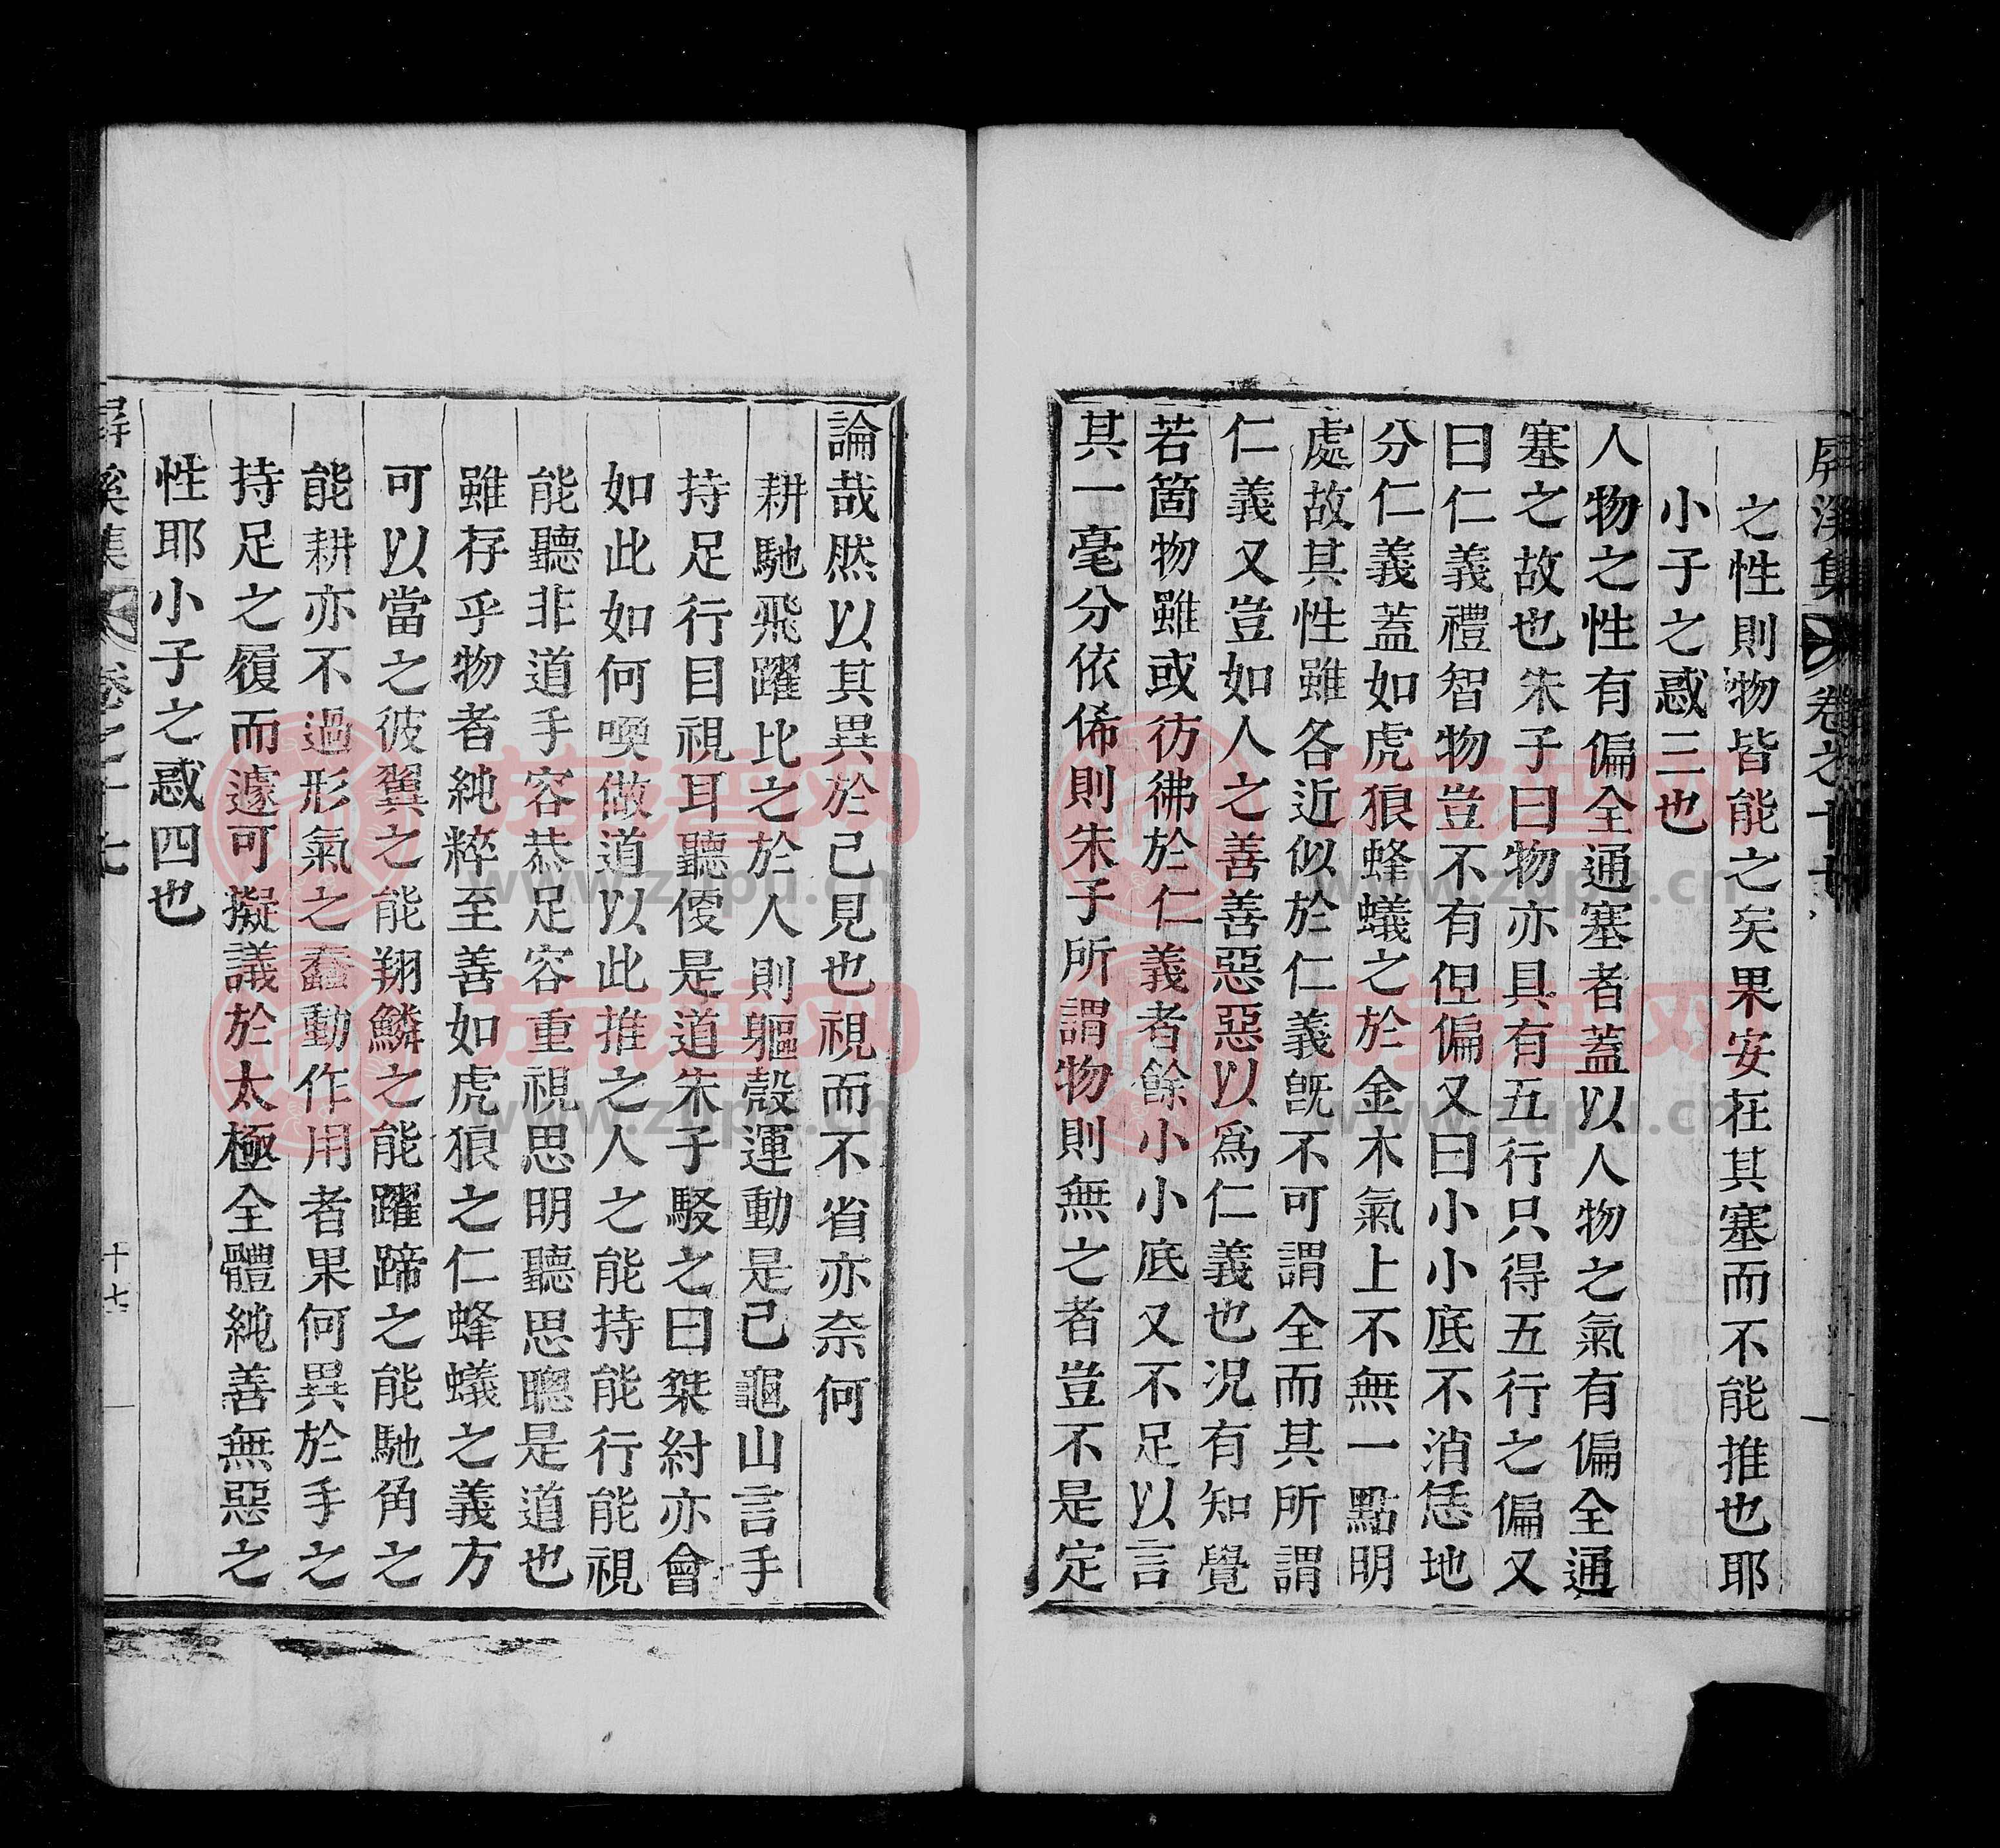 屏溪集 卷之十七
之性則物皆能之矣果安在其塞而不能推也耶
小子之惑三也
人物之性有偏全通塞者蓋以人物之氣有偏全通
塞之故也朱子曰物亦具有五行只得五行之偏又
曰仁義禮智物豈不有但偏又曰小小底不消恁地
分仁義蓋如虎狼蜂蟻之於金木氣上不無一點明
處故其性雖各近似於仁義旣不可謂全而其所謂
仁義又豈如人之善善惡惡以爲仁義也況有知覺
若箇物雖或彷彿於仁義者餘小小底又不足以言
其一毫分依俙則朱子所謂物則無之者豈不是定
論哉然以其異於己見也視而不省亦奈何
耕馳飛躍比之於人則軀殼運動是已龜山言手
持足行目視耳聽便是道朱子駁之曰桀紂亦會
如此如何喚做道以此推之人之能持能行能視
能聽非道手容恭足容重視思明聽思聰是道也
雖存乎物者純粹至善如虎狼之仁蜂蟻之義方
可以當之彼翼之能翔鱗之能躍蹄之能馳角之
能耕亦不過形氣之蠢動作用者果何異於手之
持足之履而遽可擬議於太極全體純善無惡之
性耶小子之惑四也
屏溪集 卷之十七 十七
族譜网
www.zupu.cn
族譜网
www.zupu.cn
族譜网
www.zupu.cn
族譜网
www.zupu.cn